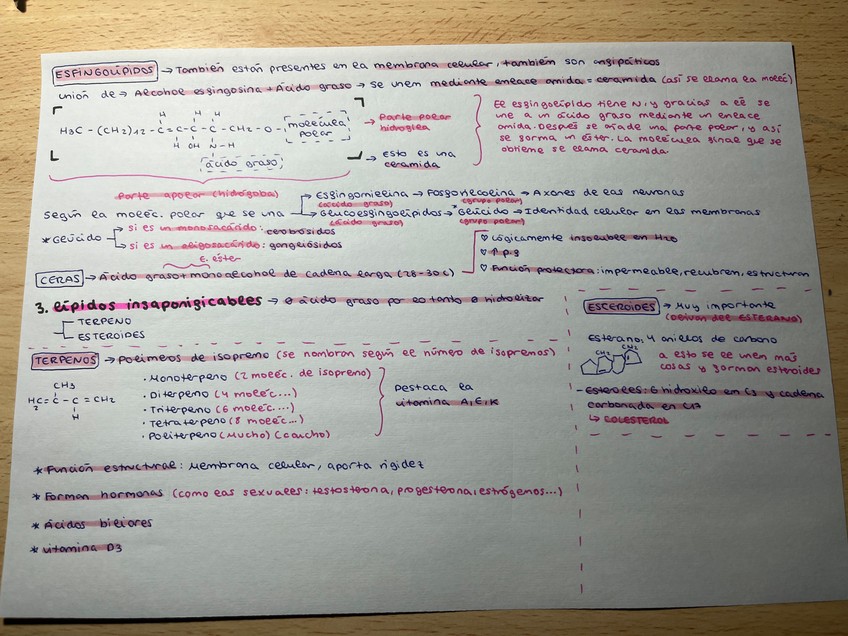 ESFINGOLÍPIDOS → También están presentes en la membrana celular, también son angipáticos
unión de → Alcohol esgingosina + Ácido graso → Se unen mediante enlace amida = ceramida (así se llama la moléc)
H3C - (CH2)12 - C = C - C - C - CH2 - O - molécula polar
H H H
H OH N-H
ácido graso
→ Parte polar hidrogila
→ esto es una ceramida
El esgingolípido tiene N, y gracias a él se
une a un ácido graso mediante un enlace
amida. Después se añade una parte polar, y así
se gorma un éster. La molécula ginal que se
obtiene se llama ceramida
Parte apolar (hidrógoba)
Según la moléc. polar que se una
→ Esgingomielina → Fosgorilcolina → Axones de las neuronas
(ácido graso) (grupo polar)
→ Glucoesgingolípidos → *Glúcido → Identidad celular en las membranas
(ácido graso) (grupo polar)
* Glúcido → si es un monosacárido: cerobósidos
→ si es un oligosacárido: gangliósidos
E. éster
CERAS → Ácido graso + monoalcohol de cadena larga (28-30c)
♡ Lógicamente insoluble en H2O
♡ ↑ p.g
♡ Función protectora: impermeable, recubren, estructuran
3. lípidos insaponigicables → ∅ ácido graso por lo tanto ∅ hidrolizar
TERPENO
ESTEROIDES
TERPENOS → Polímeros de isopreno (se nombran según el número de isoprenos)
CH3
H2C = C - C = CH2
H
· Monoterpeno (2 moléc. de isopreno)
· Diterpeno (4 moléc...)
· Triterpeno (6 moléc....)
· Tetraterpeno (8 moléc...)
· Politerpeno (Mucho) (caucho)
Destaca la
vitamina A, E, K
ESTEROIDES → Muy importante
(Derivan del ESTERANO)
Esterano: 4 anillos de carbono
CH3 CH3
a esto se le unen más
cosas y gorman esteroides
- Esteroles: 6 hidroxilo en C3 y cadena
carbonada en C17
↳ COLESTEROL
* Función estructural: Membrana celular, aporta rigidez
* Forman hormonas (como las sexuales: testosterona, progesterona, estrógenos...)
* Ácidos biliares
* vitamina D3